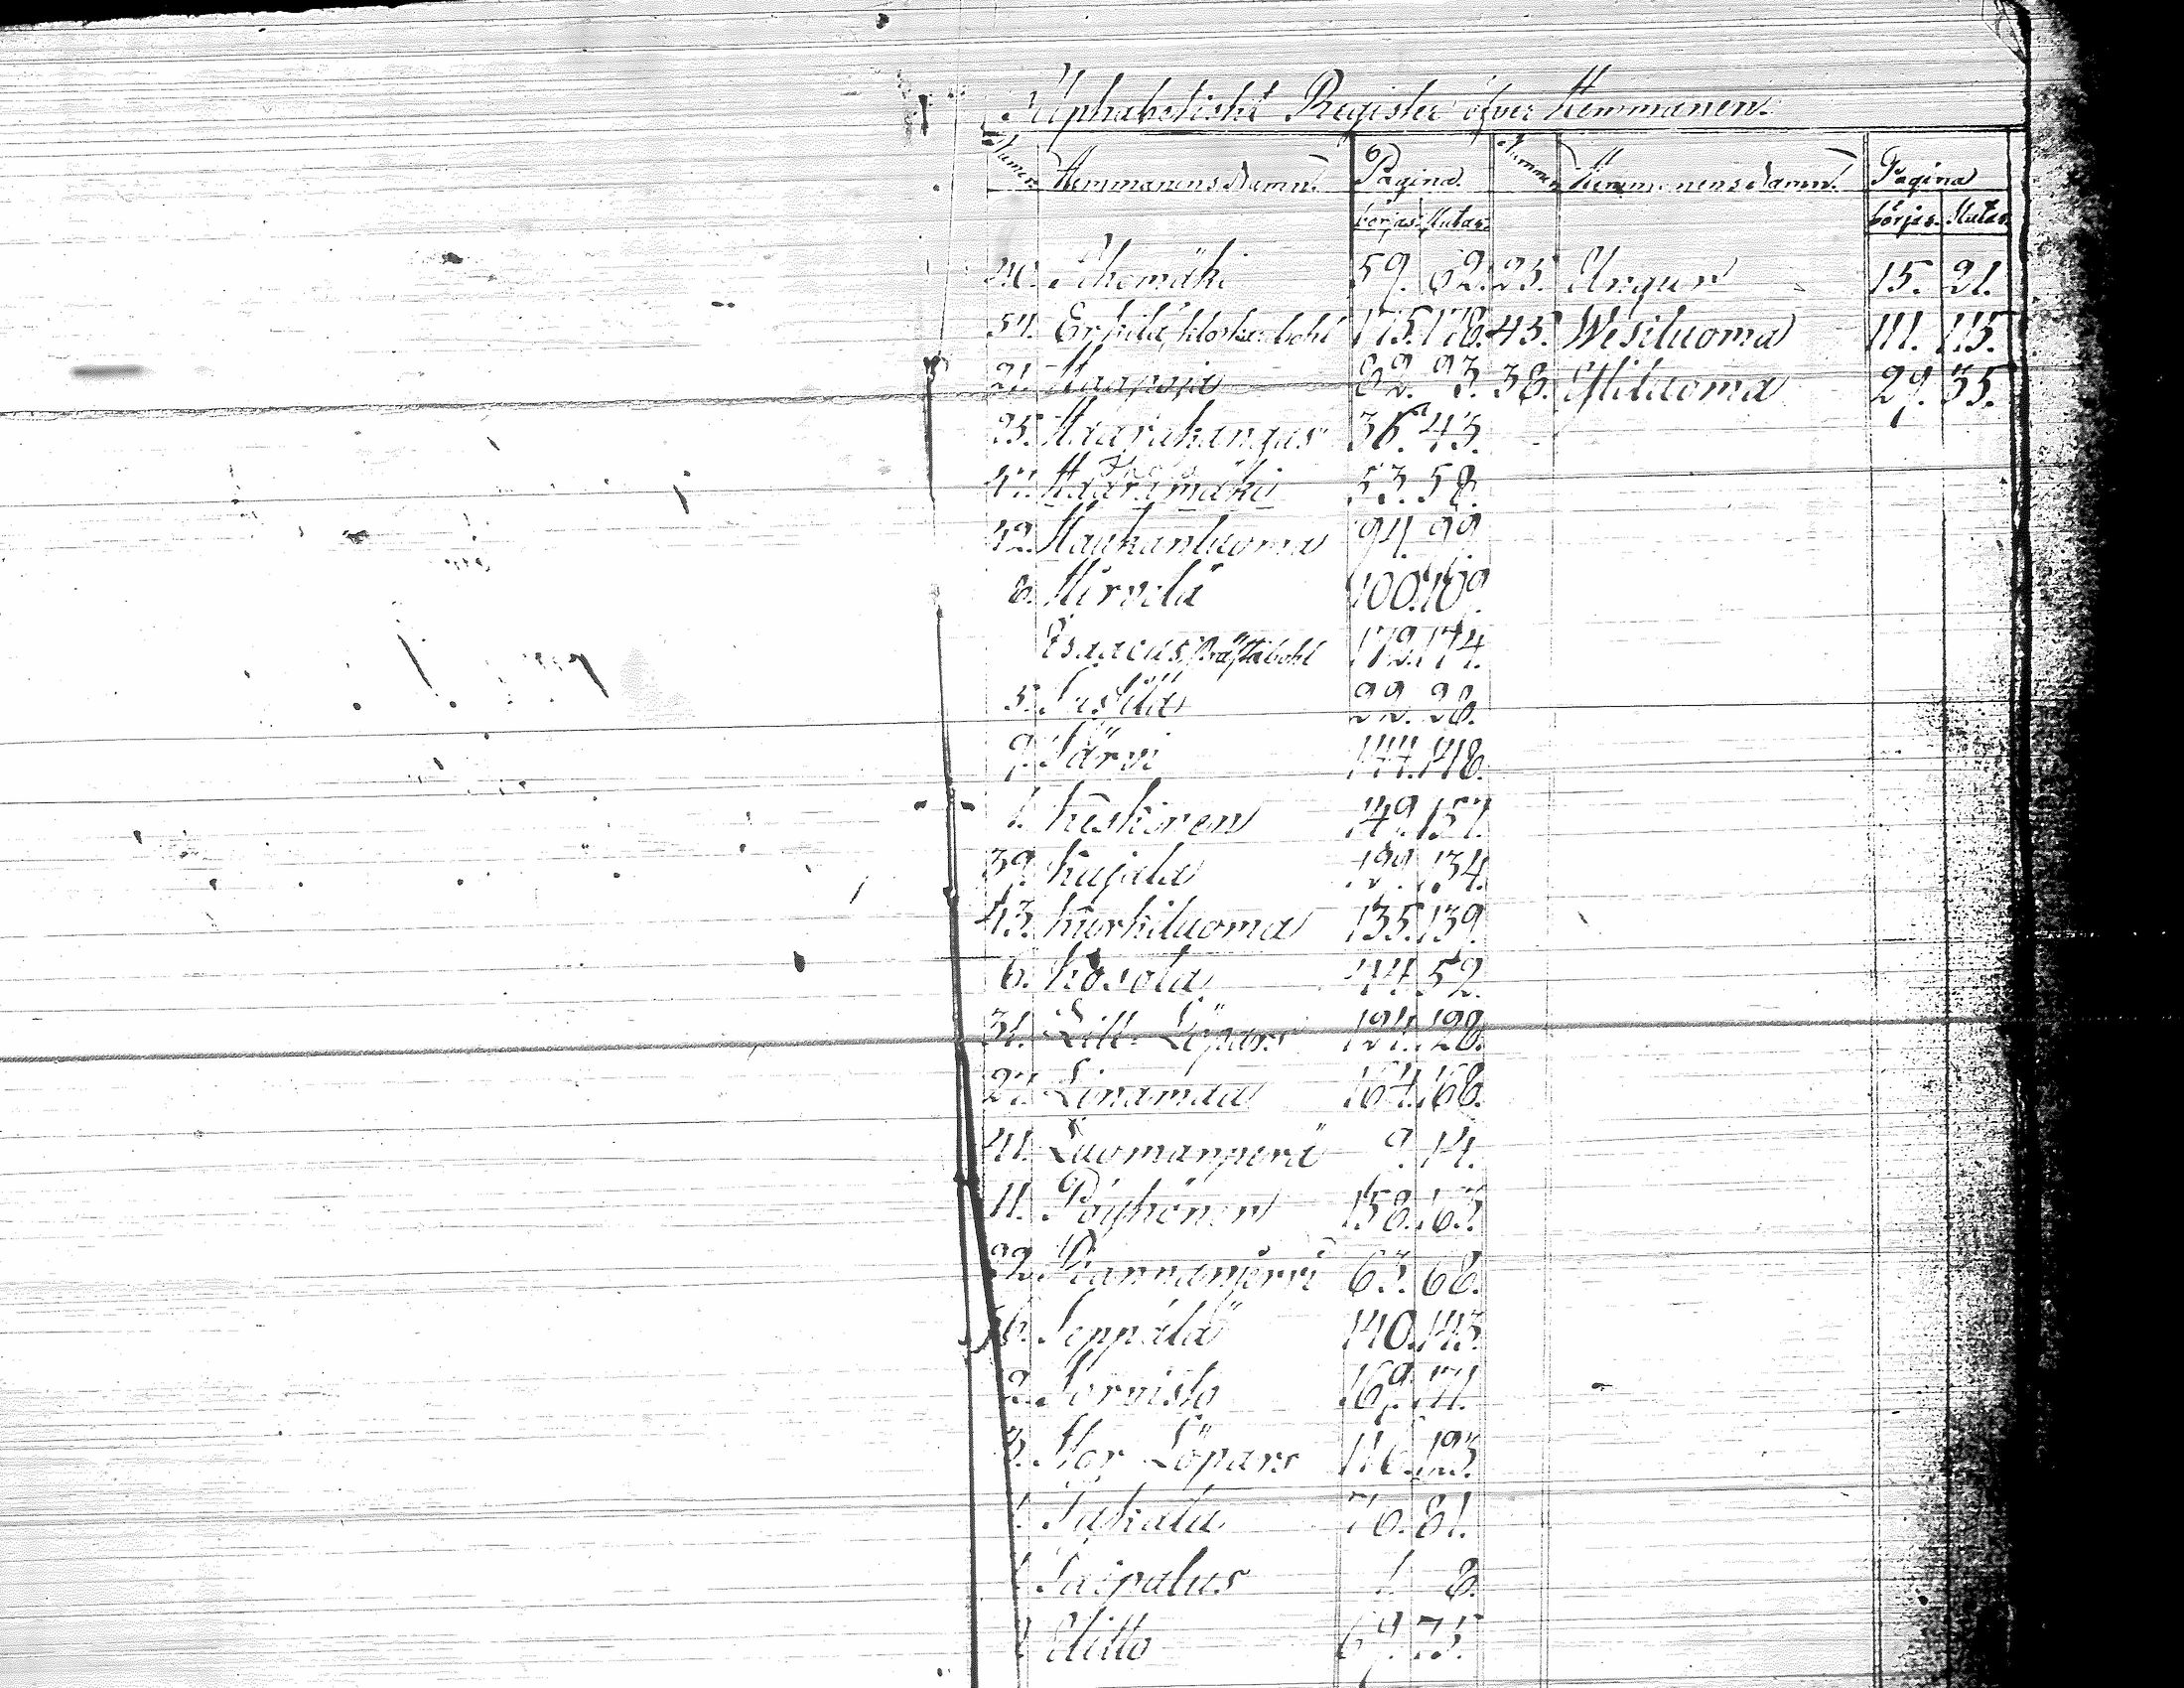 Alphabetiskt Register öfver Hemmanen.
Numer. Hemmanens Namn. Pagina. Nummer Hemmanens Namn. Pagina
börjas. slutas. börjas. slutas
40. Ahomäki 59. 62. 23. Ungur 15. 21.
54. Erkilä, klockarebohl 175. 178. 45. Wesiluoma 111. 115.
21. Haapoja 82. 93. 38. Yliluoma 29. 35.
25. Haarakangas 36. 43.
47. Harjumäki 53. 58.
42. Haukanluoma 94. 99.
8. Hirvelä 100. 109.
Isaacus, Prästabohl 172. 174.
5. Jussila 22. 28.
9. Järvi 144. 148.
1. Keskinen 149. 157.
39. Kujala 129. 134.
43. Kurkiluoma 135. 139.
6. Kosola 44. 52.
31. Lill-Löpars 124. 128.
27. Linamaa 164. 168.
41. Luomanperä 9. 14.
11. Pöyhönen 158. 163.
22. Rannanjärvi 63. 68.
6. Seppälä 140. 143.
2. Sorvisto 169. 171.
3. Stor Löpars 116. 123.
Takala 76. 81.
Taipalus 1. 8.
Utillo 69. 75.